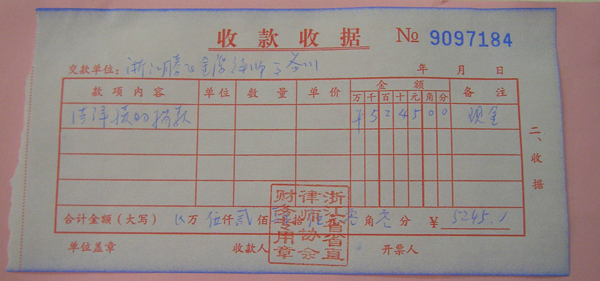 收款收据 № 9097184
交款单位：浙江腾飞金鹰律师事务所
年 月 日
款项内容 单位 数量 单价 金额 备注
万 千 百 十 元 角 分
法律援助捐款 ¥ 5 2 4 5 0 0 现金
二、收据
合计金额（大写） 万 伍仟 贰佰 拾 角 分 ¥ 5245.
浙江省省直
律师协会
财务专用章
单位盖章 收款人 开票人